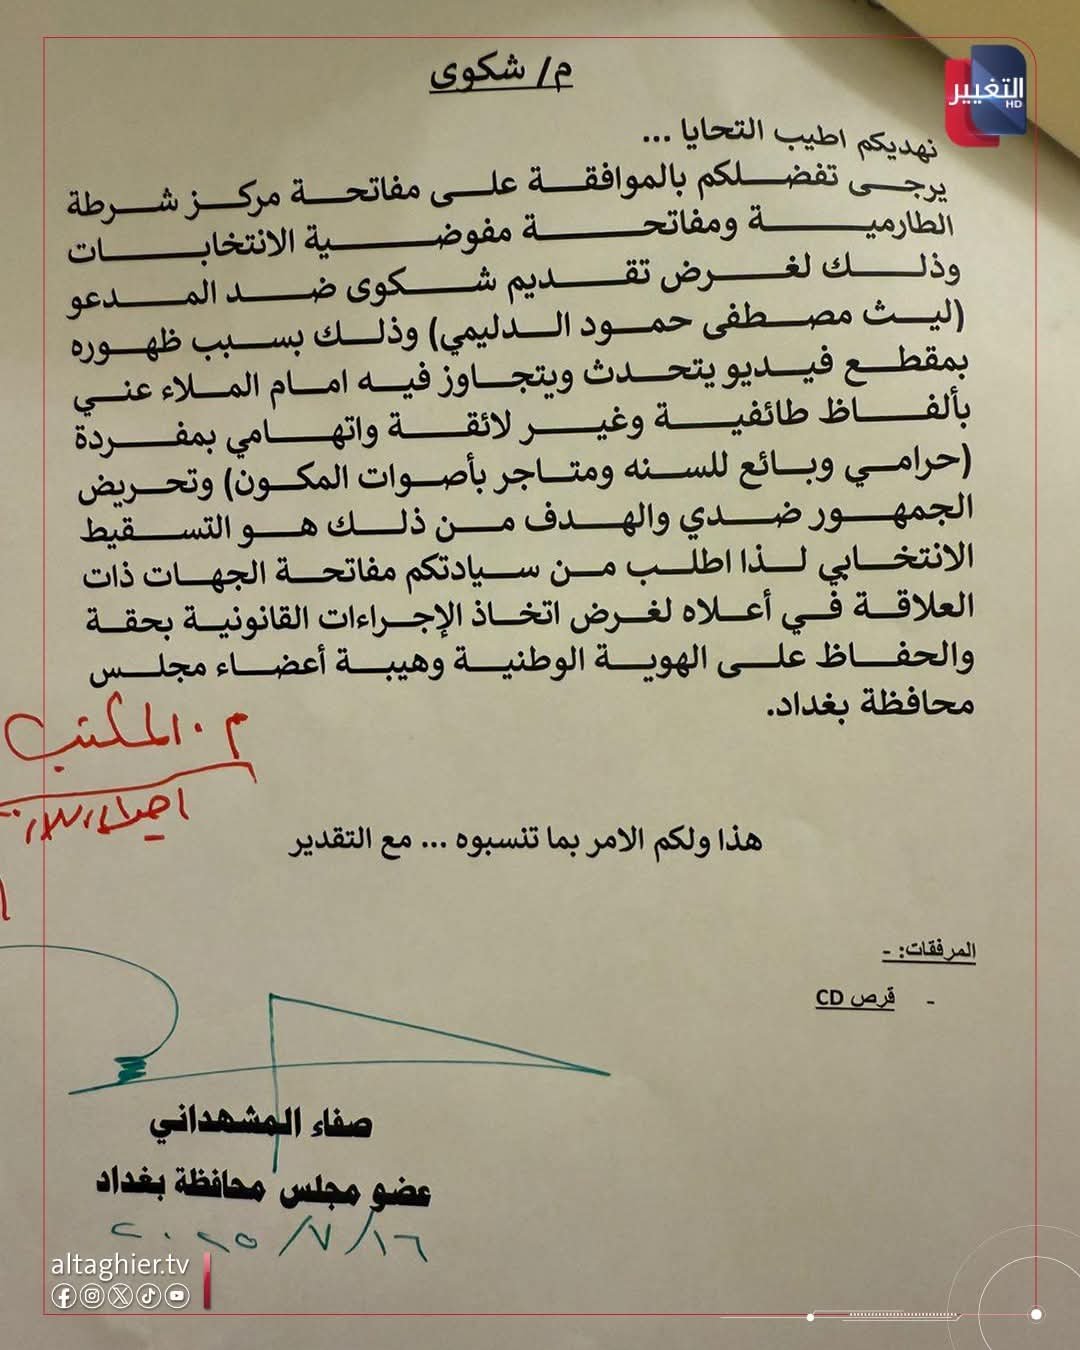 التغيير
HD
م/ شكوى
نهديكم اطيب التحايا ...
يرجى تفضلكم بالموافقة على مفاتحة مركز شرطة
الطارمية ومفاتحة مفوضية الانتخابات
وذلك لغرض تقديم شكوى ضد المدعو
(ليث مصطفى حمود الدليمي) وذلك بسبب ظهوره
بمقطع فيديو يتحدث ويتجاوز فيه امام الملاء عني
بألفاظ طائفية وغير لائقة واتهامي بمفردة
(حرامي وبائع للسنه ومتاجر بأصوات المكون) وتحريض
الجمهور ضدي والهدف من ذلك هو التسقيط
الانتخابي لذا اطلب من سيادتكم مفاتحة الجهات ذات
العلاقة في أعلاه لغرض اتخاذ الإجراءات القانونية بحقة
والحفاظ على الهوية الوطنية وهيبة أعضاء مجلس
محافظة بغداد.
م. المكتب
هذا ولكم الامر بما تنسبوه ... مع التقدير
المرفقات: -
- قرص CD
صفاء المشهداني
عضو مجلس محافظة بغداد
٢٠٢٥/٧/١٦
altaghier.tv